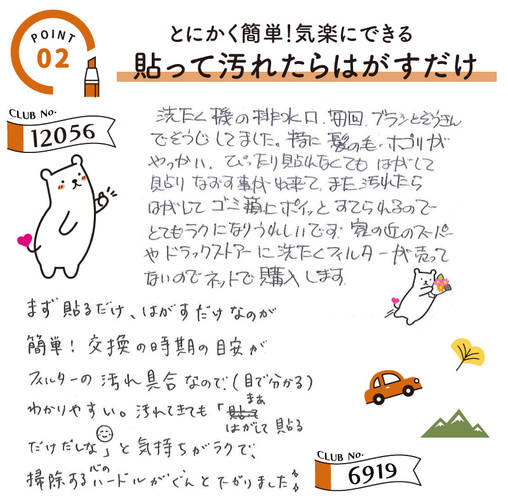 POINT
02
とにかく簡単!気楽にできる
貼って汚れたらはがすだけ
CLUB No.
12056
洗たく機の排水口、毎回、ブラシとぞうきん
でそうじしてました。特に髪の毛・ホコリが
やっかい。ぴったり貼れなくても はがして
貼りなおす事が出来て、また汚れたら
はがして ゴミ箱にポイッとすてられるので
とてもラクになりうれしいです。家の近のスーパー
やドラックストアーに洗たくフィルターが売って
ないのでネットで購入します。
まず貼るだけ、はがすだけなのが
簡単! 交換の時期の目安が
フィルターの汚れ具合なので(目で分かる)
わかりやすい。汚れてきても「まぁ
はがして貼る
だけだしな」と気持ちがラクで、
掃除する心のハードルがぐんと下がりました
CLUB No.
6919